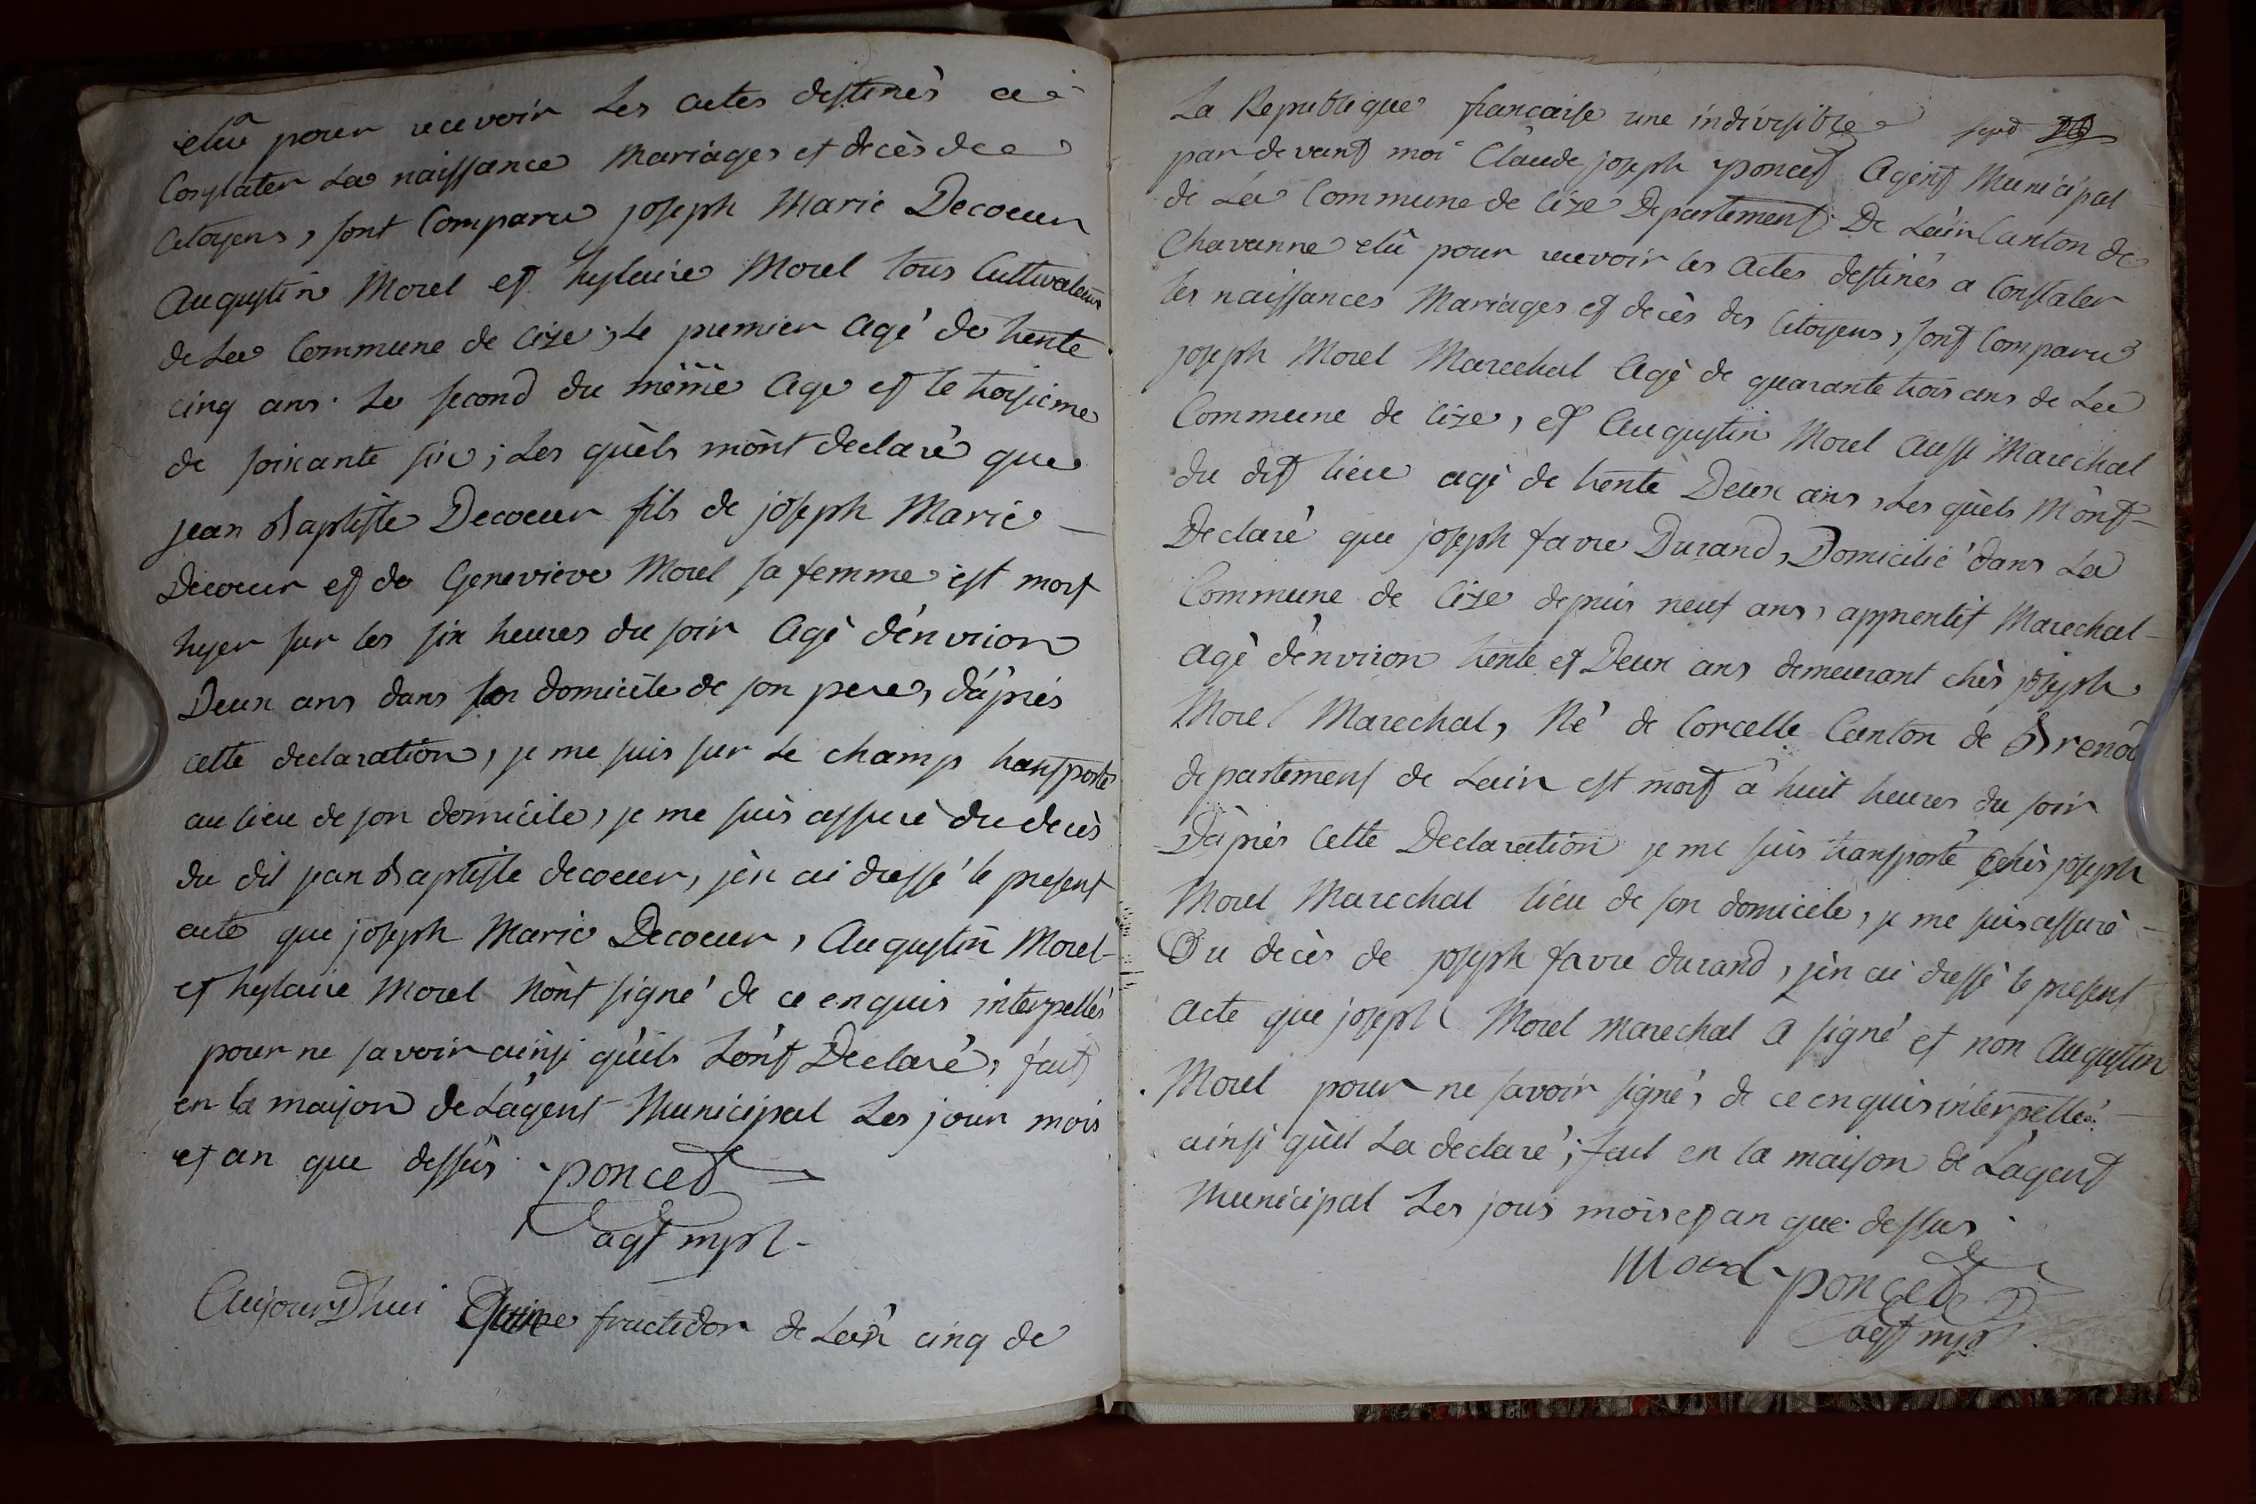 elû pour recevoir Les actes destinés a
Constater La naissance Mariages et decès de
Citoyens, sont Comparu joseph Marie Decoeur
Augustin Morel et hylaire Morel tous Cultivateurs
de La Commune de Cize, Le premier Agé de trente
cinq ans. Le second du même Age et le troisieme
de soixante six; Les quèls mònt declaré que
jean Baptiste Decoeur fils de joseph Marie
Decoeur et de Genevieve Morel sa femme est mort
hyer sur les six heures du soir Agè d'environ
Deux ans dans son domicile de son pere, d'áprés
cette declaration, je me suis sur Le champ transporté
au lieu de son domicile, je me suis assuré du decès
du dit jean Baptiste decoeur, j'èn ai dressé le present
acte que joseph Marie Decoeur, Augustin Morel
et hylaire Morel Nònt signé de ce enquis interpellés
pour ne savoir ainsi qúils Lont Declaré, fait
en la maison de L'agent Municipal Les jour mois
et an que dessus. poncet
agt mpl
Aujourdhui Quinze fructidor de L'an cinq de
La Republique française une indivisible
par devant moi Claude joseph poncet Agent Municipal
de La Commune de Cize Departement De L'ain Canton de
Chavanne elû pour recevoir les Actes destinés a Constater
les naissances Mariages et decès des Citoyens, sont Comparu
joseph Morel Marechal Agè de quarante trois ans de La
Commune de Cize, et Augustin Morel Aussi Marechal
du dit lieu agé de trente Deux ans, Les quèls Mònt
Declaré que joseph favre Durand, Domicilié dans La
Commune de Cize depuis neuf ans, apprentif Marechal
Agè d'environ trente et Deux ans demeurant chès joseph
Morel Marechal, Né de Corcelle Canton de Brenod
departement de Lain est mort a huit heures du soir
D'áprés Cette Declaration je me suis transporté chès joseph
Morel Marechal lieu de son domicile, je me suis assuré
Du decès de joseph favre durand, j'èn ai dressé le present
Acte que joseph Morel Marechal a signé et non Augustin
Morel pour ne savoir signé, de ce enquis interpellé
ainsi qúil La declaré; fait en la maison de L'agent
Municipal Les jour mois et an que dessus.
Morel poncet
agt mpl